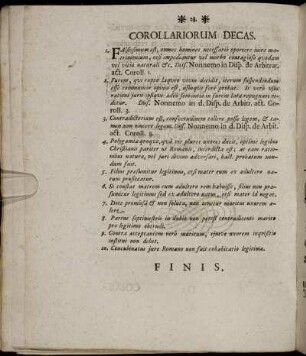 * 24. *
COROLLARIORUM DECAS.
1. Falsissimum est, omnes homines necessario oportere inire matrimonium, nisi impediantur vel morbo contagioso quodam
vel vicio naturali &c. Diss. Nonnemo in Disp. de Arbitrar.
act. Coroll.
2. Furem, qui rupto laqueo vivus decidit, iterum suspendendum
esse communior opinio est, usuque fori probatur.
ditur. Diss. Nonnemo in d. Disp. de Arbitr. act. Coroll. 3.
3. Contradictorium est, consuetudinem tollere posse legem, & tamen non vincere legem. Diss. Nonnemo in d. Disp. de Arbit.
act. Coroll. 8.
4. Polygamia quoque, quâ vir plures uxores ducit, optimo legibus
Christianis pariter ut Romanis, interdicta est; ac eam rationibus natura, nec juri divino adversari, haut probatum nondum fuit.
5. Filius præsumitur legitimus, etsi mater eum ex adultero natum profiteatur.
6. Si constat matrem cum adultero rem habuisse, filius non præsumitur legitimus sed ex adultero natus, etsi mater id neget.
7. Dote promissâ & non solutâ, non tenetur maritus uxorem alere.
8. Partus septimestris in dubio non potest contradicente marito
pro legitimo obtrudi.
9. Contra acceptantem verò maritum, ejusve uxorem inquisitio
institui non debet.
10. Concubinatus jure Romano non fuit cohabitatio legitima.
FINIS.